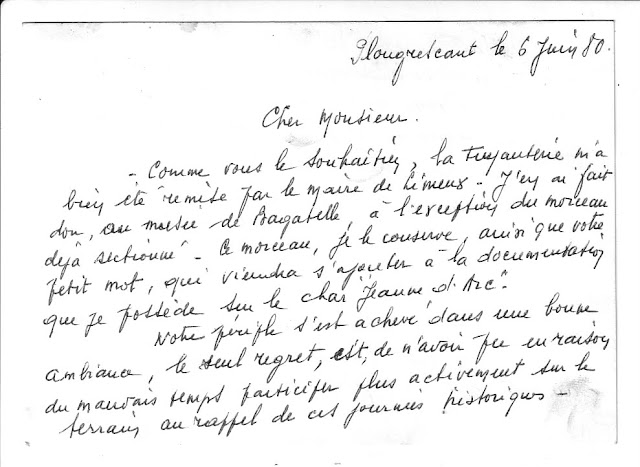 Plougrescant le 6 Juin 80.
Cher Monsieur.
- Comme vous le souhaitiez, la tuyauterie m'a
bien été remise par le maire de Limeux - J'en ai fait
don, au musée de Bagatelle, à l'exception du morceau
déjà sectionné - Ce morceau, je le conserve, ainsi que votre
petit mot, qui viendra s'ajouter à la documentation
que je possède sur le char "Jeanne d'Arc".
Notre périple s'est achevé dans une bonne
ambiance, le seul regret, est, de n'avoir pu en raison
du mauvais temps participer plus activement sur le
terrain au rappel de ces journées historiques -